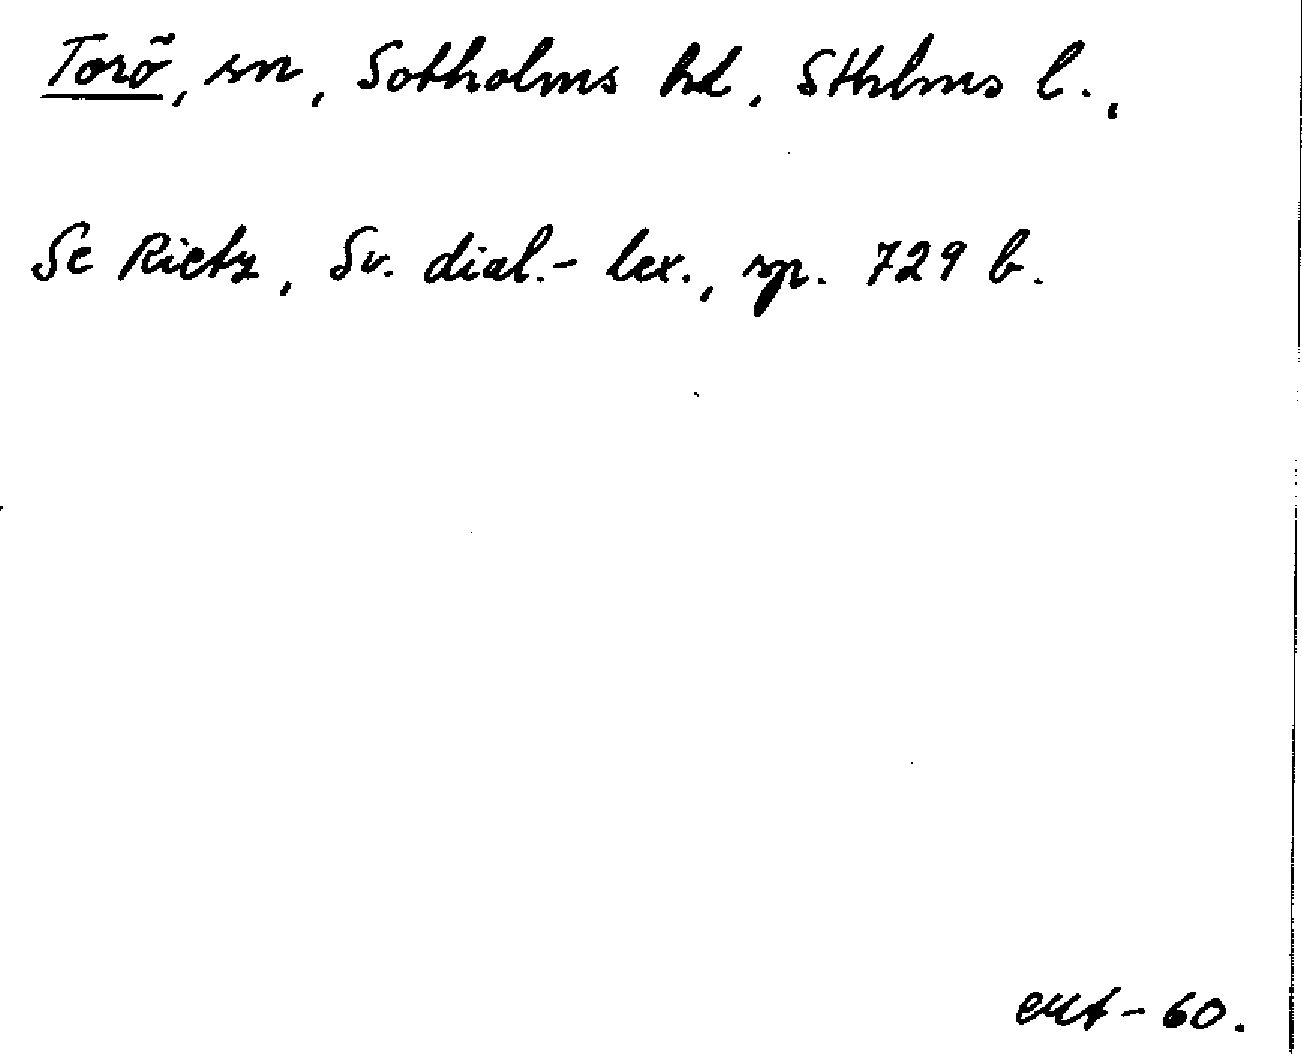 Torö, sn, Sotholms hd, Sthlms l.,
Se Rietz, Sv. dial.-lex., sp. 729 b.
-60.